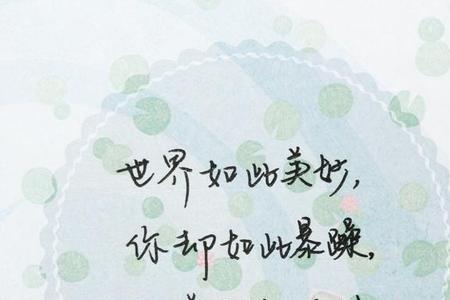 世界如此美妙，
你却如此暴躁，